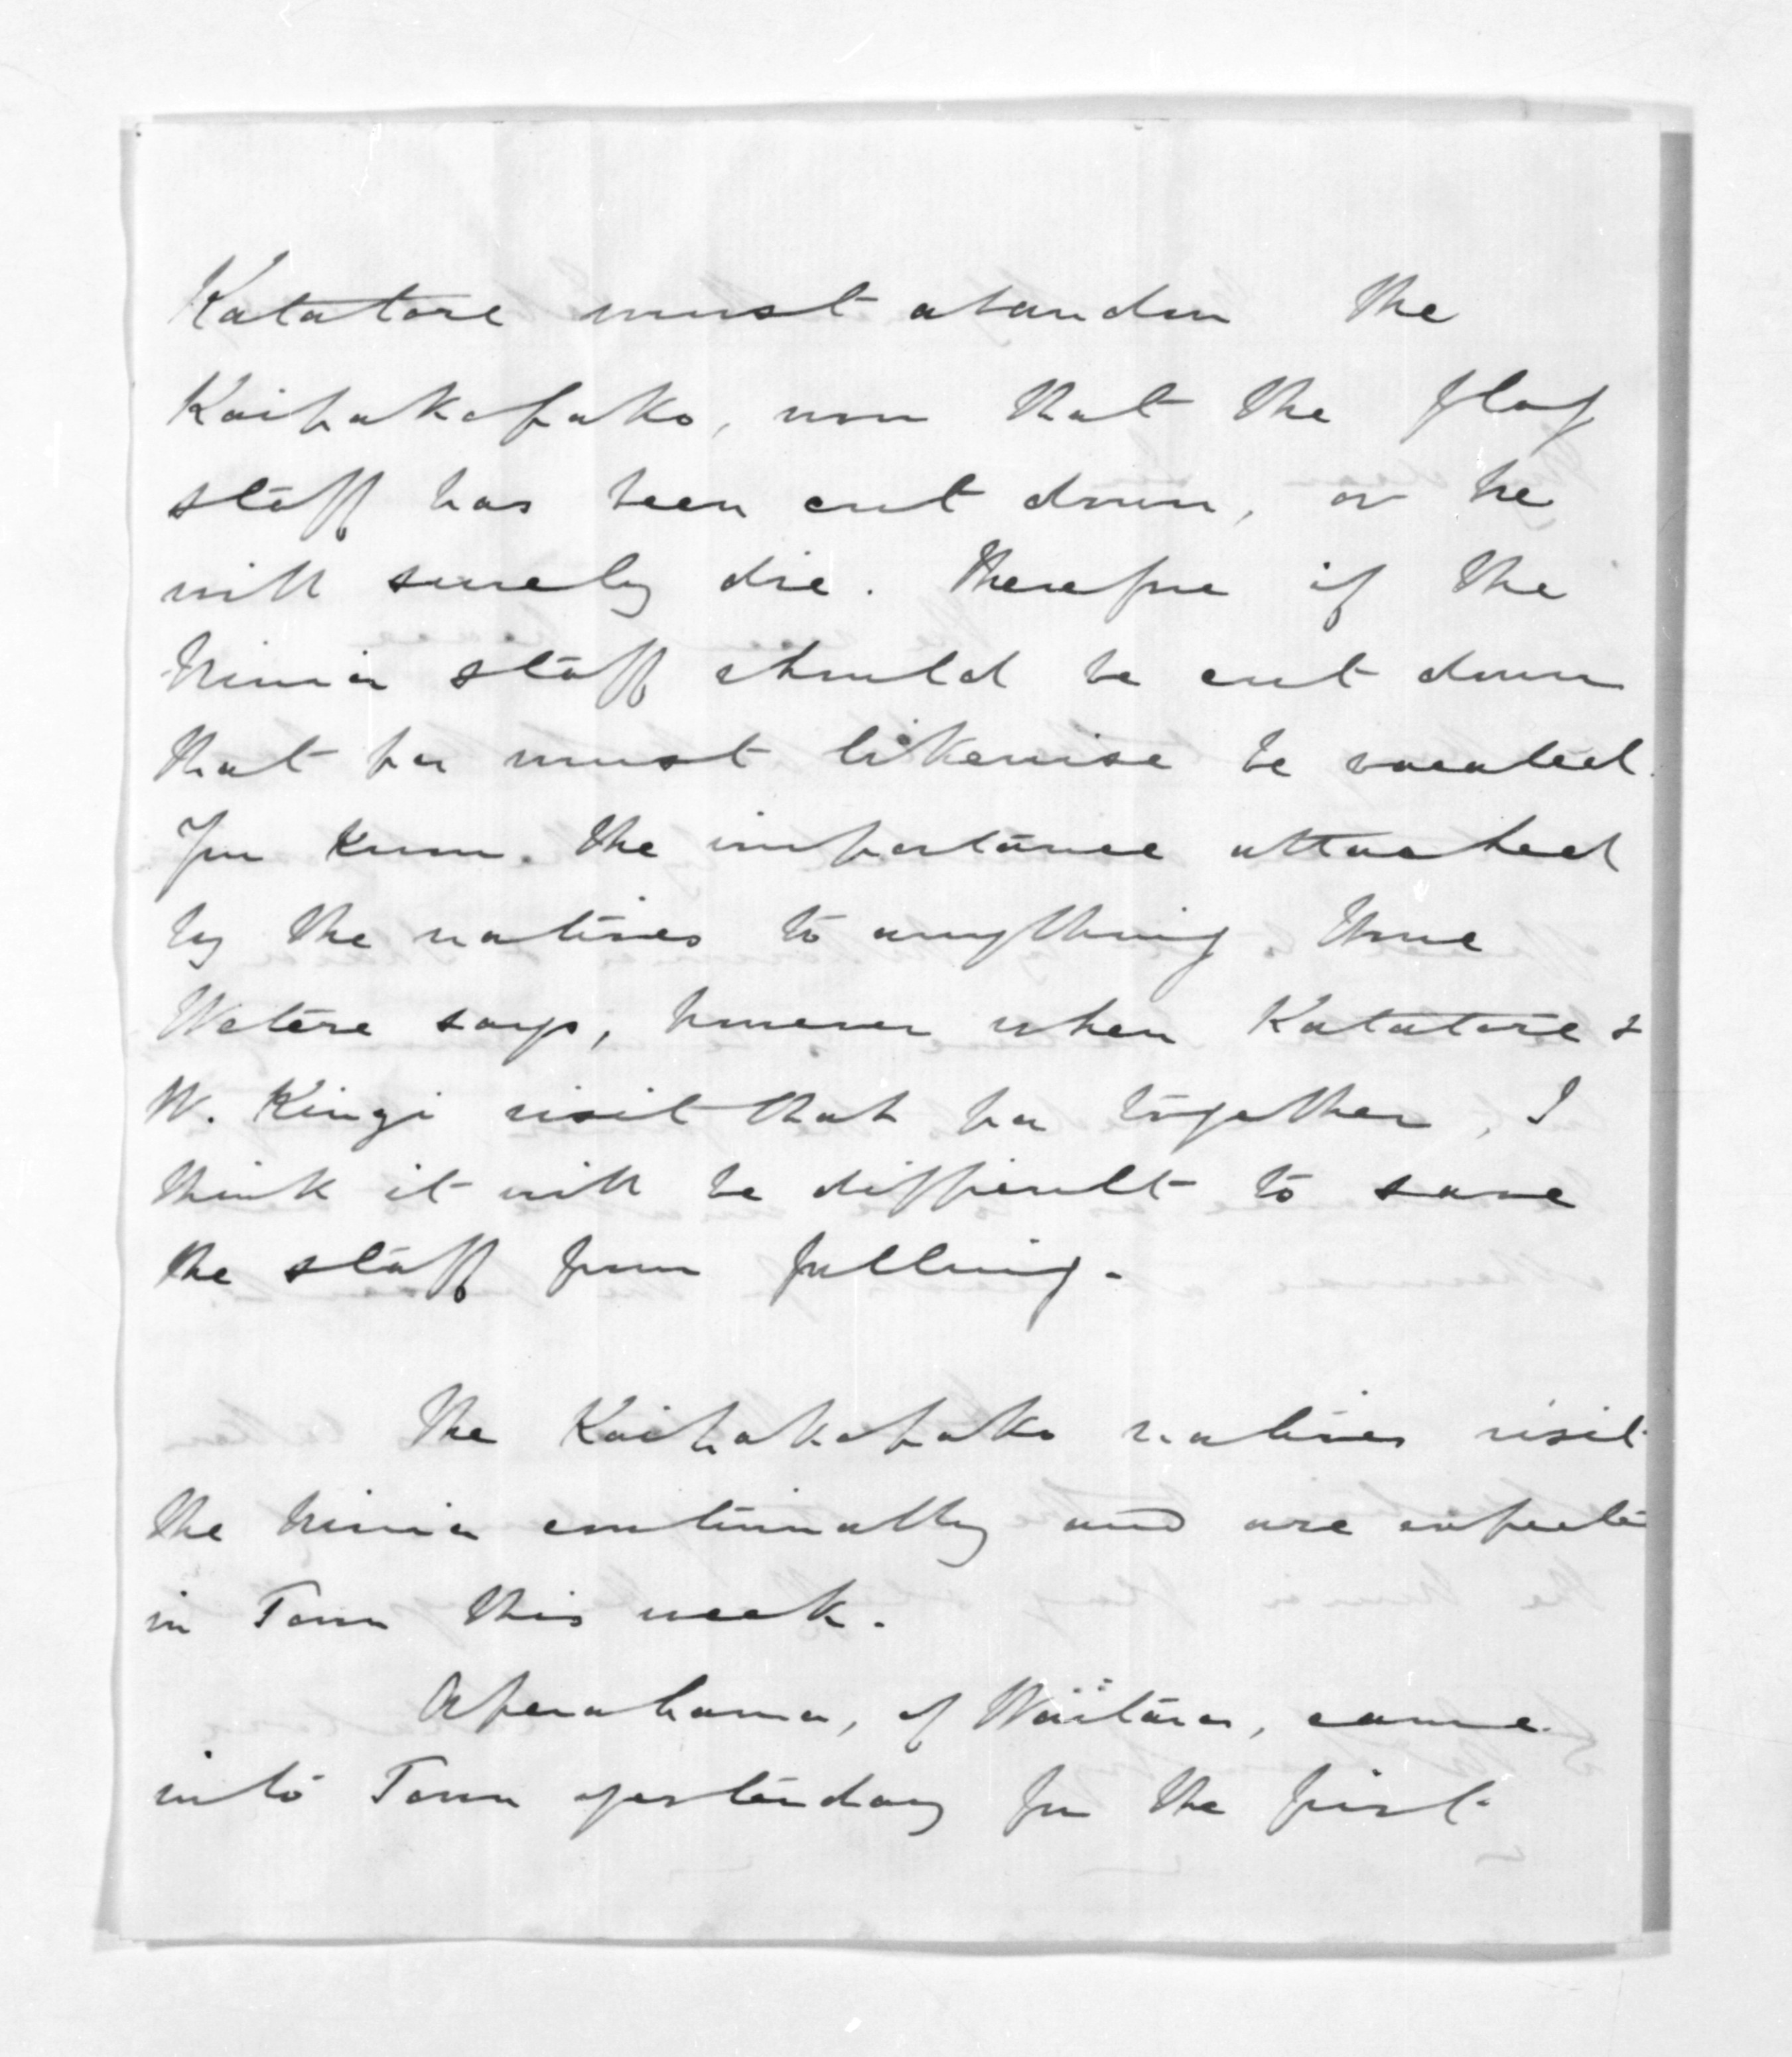 Katatore must abandon the
Kaipakopako, now that the flag
staff has been cut down, or he
will surely die. Therefore if the
Ninia staff should be cut down
that pa must likewise be vacated.
You know the importance attached
by the natives to anything
Wetere says, however when Katatore &
W. Kingi visit that pa together, I
think it will be difficult to save
the staff from falling.
The Kaipakopako natives visit
the Ninia continually and are expected
in Town this week.
Aperahama, of Waitara, came
into Town yesterday for the first